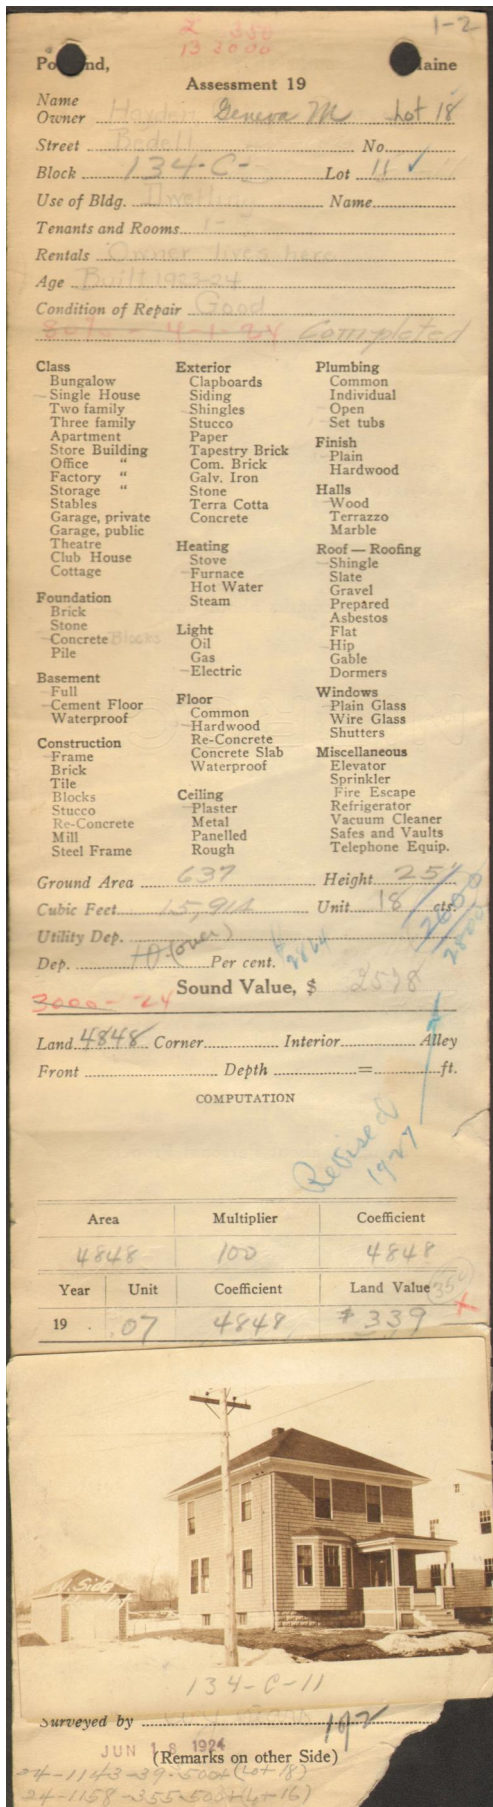 1-2
L 350
B 3000
Po nd, aine
Assessment 19
Name
Owner Hayden Geneva M Lot 18
Street Bedell No.
Block 134-C- Lot 11 ✓
Use of Bldg. Dwelling Name
Tenants and Rooms 1-
Rentals Owner lives here
Age Built 1923-24
Condition of Repair Good
80% - 4-1-24 Completed
Class
Bungalow
Single House
Two family
Three family
Apartment
Store Building
Office "
Factory "
Storage "
Stables
Garage, private
Garage, public
Theatre
Club House
Cottage
Foundation
Brick
Stone
Concrete Blocks
Pile
Basement
Full
Cement Floor
Waterproof
Construction
Frame
Brick
Tile
Blocks
Stucco
Re-Concrete
Mill
Steel Frame
Exterior
Clapboards
Siding
Shingles
Stucco
Paper
Tapestry Brick
Com. Brick
Galv. Iron
Stone
Terra Cotta
Concrete
Heating
Stove
Furnace
Hot Water
Steam
Light
Oil
Gas
Electric
Floor
Common
Hardwood
Re-Concrete
Concrete Slab
Waterproof
Ceiling
Plaster
Metal
Panelled
Rough
Plumbing
Common
Individual
Open
Set tubs
Finish
Plain
Hardwood
Halls
Wood
Terrazzo
Marble
Roof — Roofing
Shingle
Slate
Gravel
Prepared
Asbestos
Flat
Hip
Gable
Dormers
Windows
Plain Glass
Wire Glass
Shutters
Miscellaneous
Elevator
Sprinkler
Fire Escape
Refrigerator
Vacuum Cleaner
Safes and Vaults
Telephone Equip.
Ground Area 637 Height 25'
Cubic Feet 15,914 Unit 18 cts.
2600
2800
Utility Dep.
(over)
Dep. 10 Per cent. 2864
Sound Value, $ 2578
3000-24
Land 4848 Corner Interior Alley
Front Depth = ft.
COMPUTATION
Revised
1927
Area Multiplier Coefficient
4848 100 4848
Year Unit Coefficient Land Value 350
19 .07 4848 $339
W. Side
134-C-11
Surveyed by 192
JUN 18 1924
(Remarks on other Side)
24-1143-39-500+(Lot 18)
24-1158-355-500+(Lot 16)